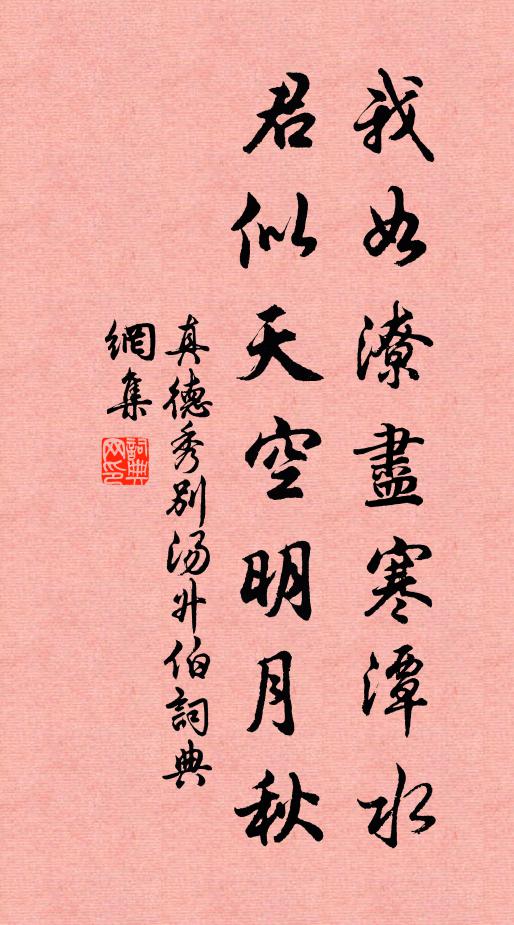 我如潦盡寒潭水
君似天空明月秋
真德秀別湯升伯詞典
網集
詞典網印